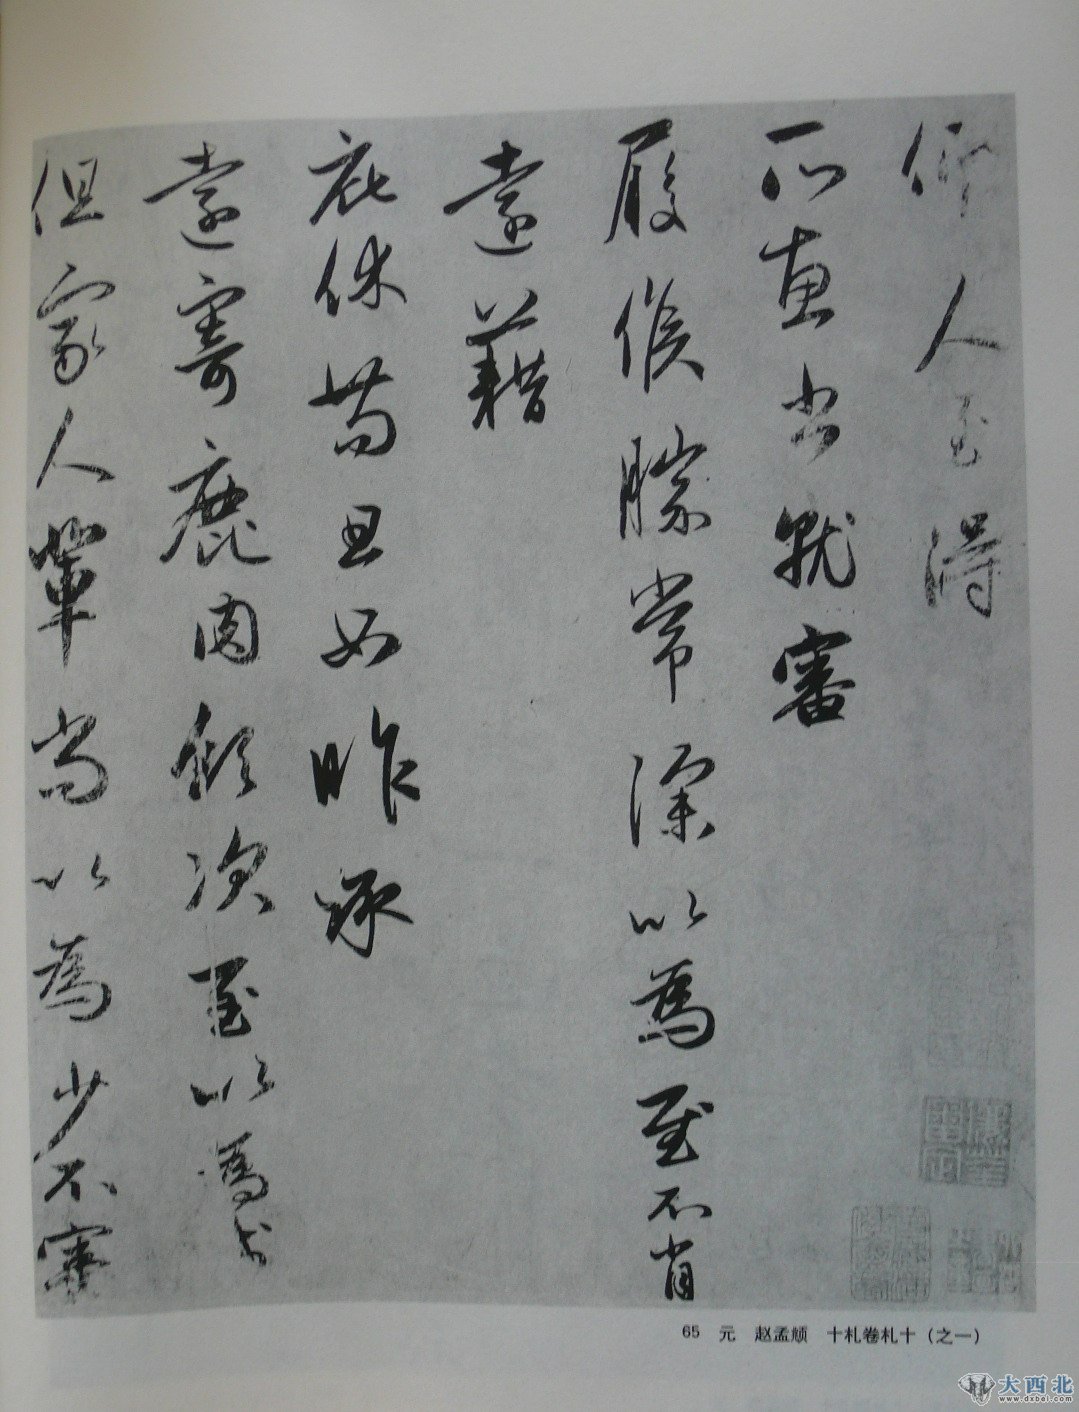 便人至得
所惠书就審
履候勝常深以為慰不肖
遠藉
庇休苟且如昨承
遠寄鹿肉領次至以為感
但家人輩尚以為少不審
65 元 赵孟頫 十札卷札十（之一）
大西北
www.dxbei.com